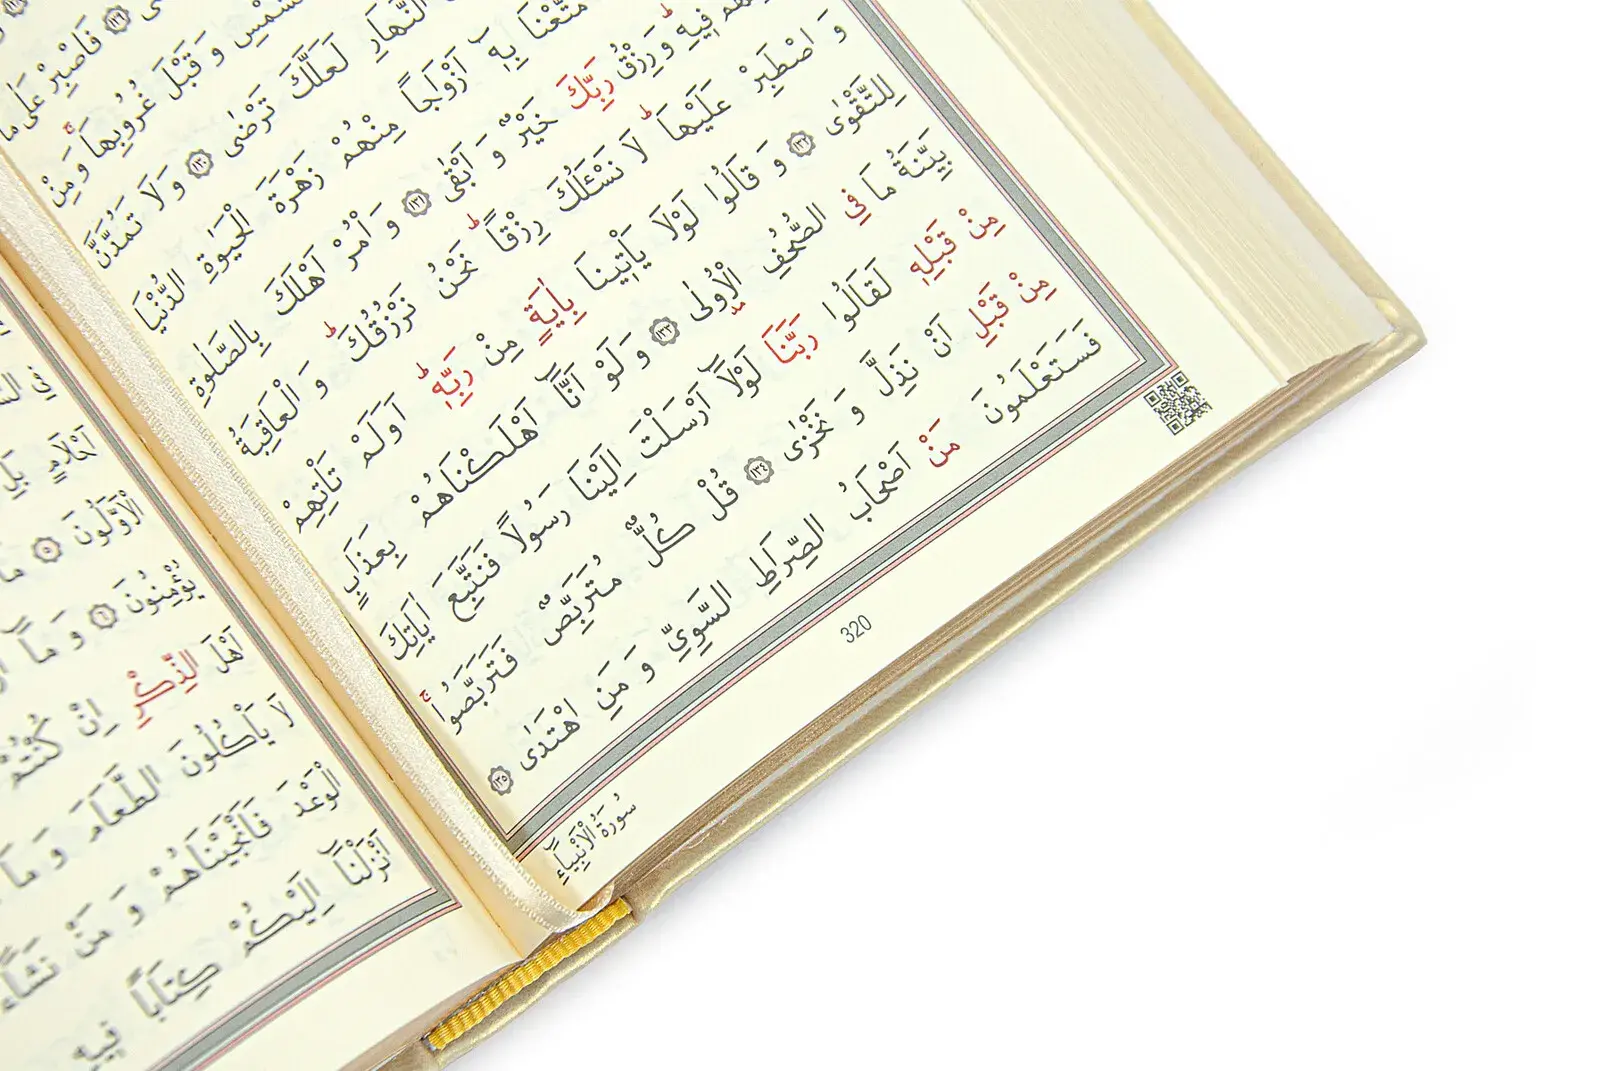 ١٢٩ فَاصْبِرْ عَلٰى مَا
وَ قَبْلَ غُرُوبِهَا وَ مِنْ
النَّهَارِ لَعَلَّكَ تَرْضٰى ١٣٠ وَ لَا تَمُدَّنَّ
مَتَّعْنَا بِهٖٓ اَزْوَاجًا مِنْهُمْ زَهْرَةَ الْحَيٰوةِ الدُّنْيَا
فِيهِ وَ رِزْقُ رَبِّكَ خَيْرٌ وَ اَبْقٰى ١٣١ وَ أْمُرْ اَهْلَكَ بِالصَّلٰوةِ
وَ اصْطَبِرْ عَلَيْهَا لَا نَسْـَٔلُكَ رِزْقًا نَحْنُ نَرْزُقُكَ وَ الْعَاقِبَةُ
لِلتَّقْوٰى ١٣٢ وَ قَالُوا لَوْلَا يَأْتِينَا بِاٰيَةٍ مِنْ رَبِّهٖ اَوَلَمْ تَأْتِهِمْ
بَيِّنَةُ مَا فِي الصُّحُفِ الْاُولٰى ١٣٣ وَ لَوْ اَنَّٓا اَهْلَكْنَاهُمْ بِعَذَابٍ
مِنْ قَبْلِهٖ لَقَالُوا رَبَّنَا لَوْلَٓا اَرْسَلْتَ اِلَيْنَا رَسُولًا فَنَتَّبِعَ اٰيَاتِكَ
مِنْ قَبْلِ اَنْ نَذِلَّ وَ نَخْزٰى ١٣٤ قُلْ كُلٌّ مُتَرَبِّصٌ فَتَرَبَّصُوا
فَسَتَعْلَمُونَ مَنْ اَصْحَابُ الصِّرَاطِ السَّوِيِّ وَ مَنِ اهْتَدٰى ١٣٥
320
سُورَةُ الْاَنْبِيَٓاءِ
اَحْلَامٍ بَلِ
الْاَوَّلُونَ ٥ مَٓا
يُؤْمِنُونَ ٦ وَ مَٓا
اَهْلَ الذِّكْرِ اِنْ كُنْتُمْ
لَا يَأْكُلُونَ الطَّعَامَ وَ مَا
الْوَعْدَ فَاَنْجَيْنَاهُمْ وَ مَنْ نَشَٓاءُ
اَنْزَلْنَٓا اِلَيْكُمْ كِتَابًا فِيهِ